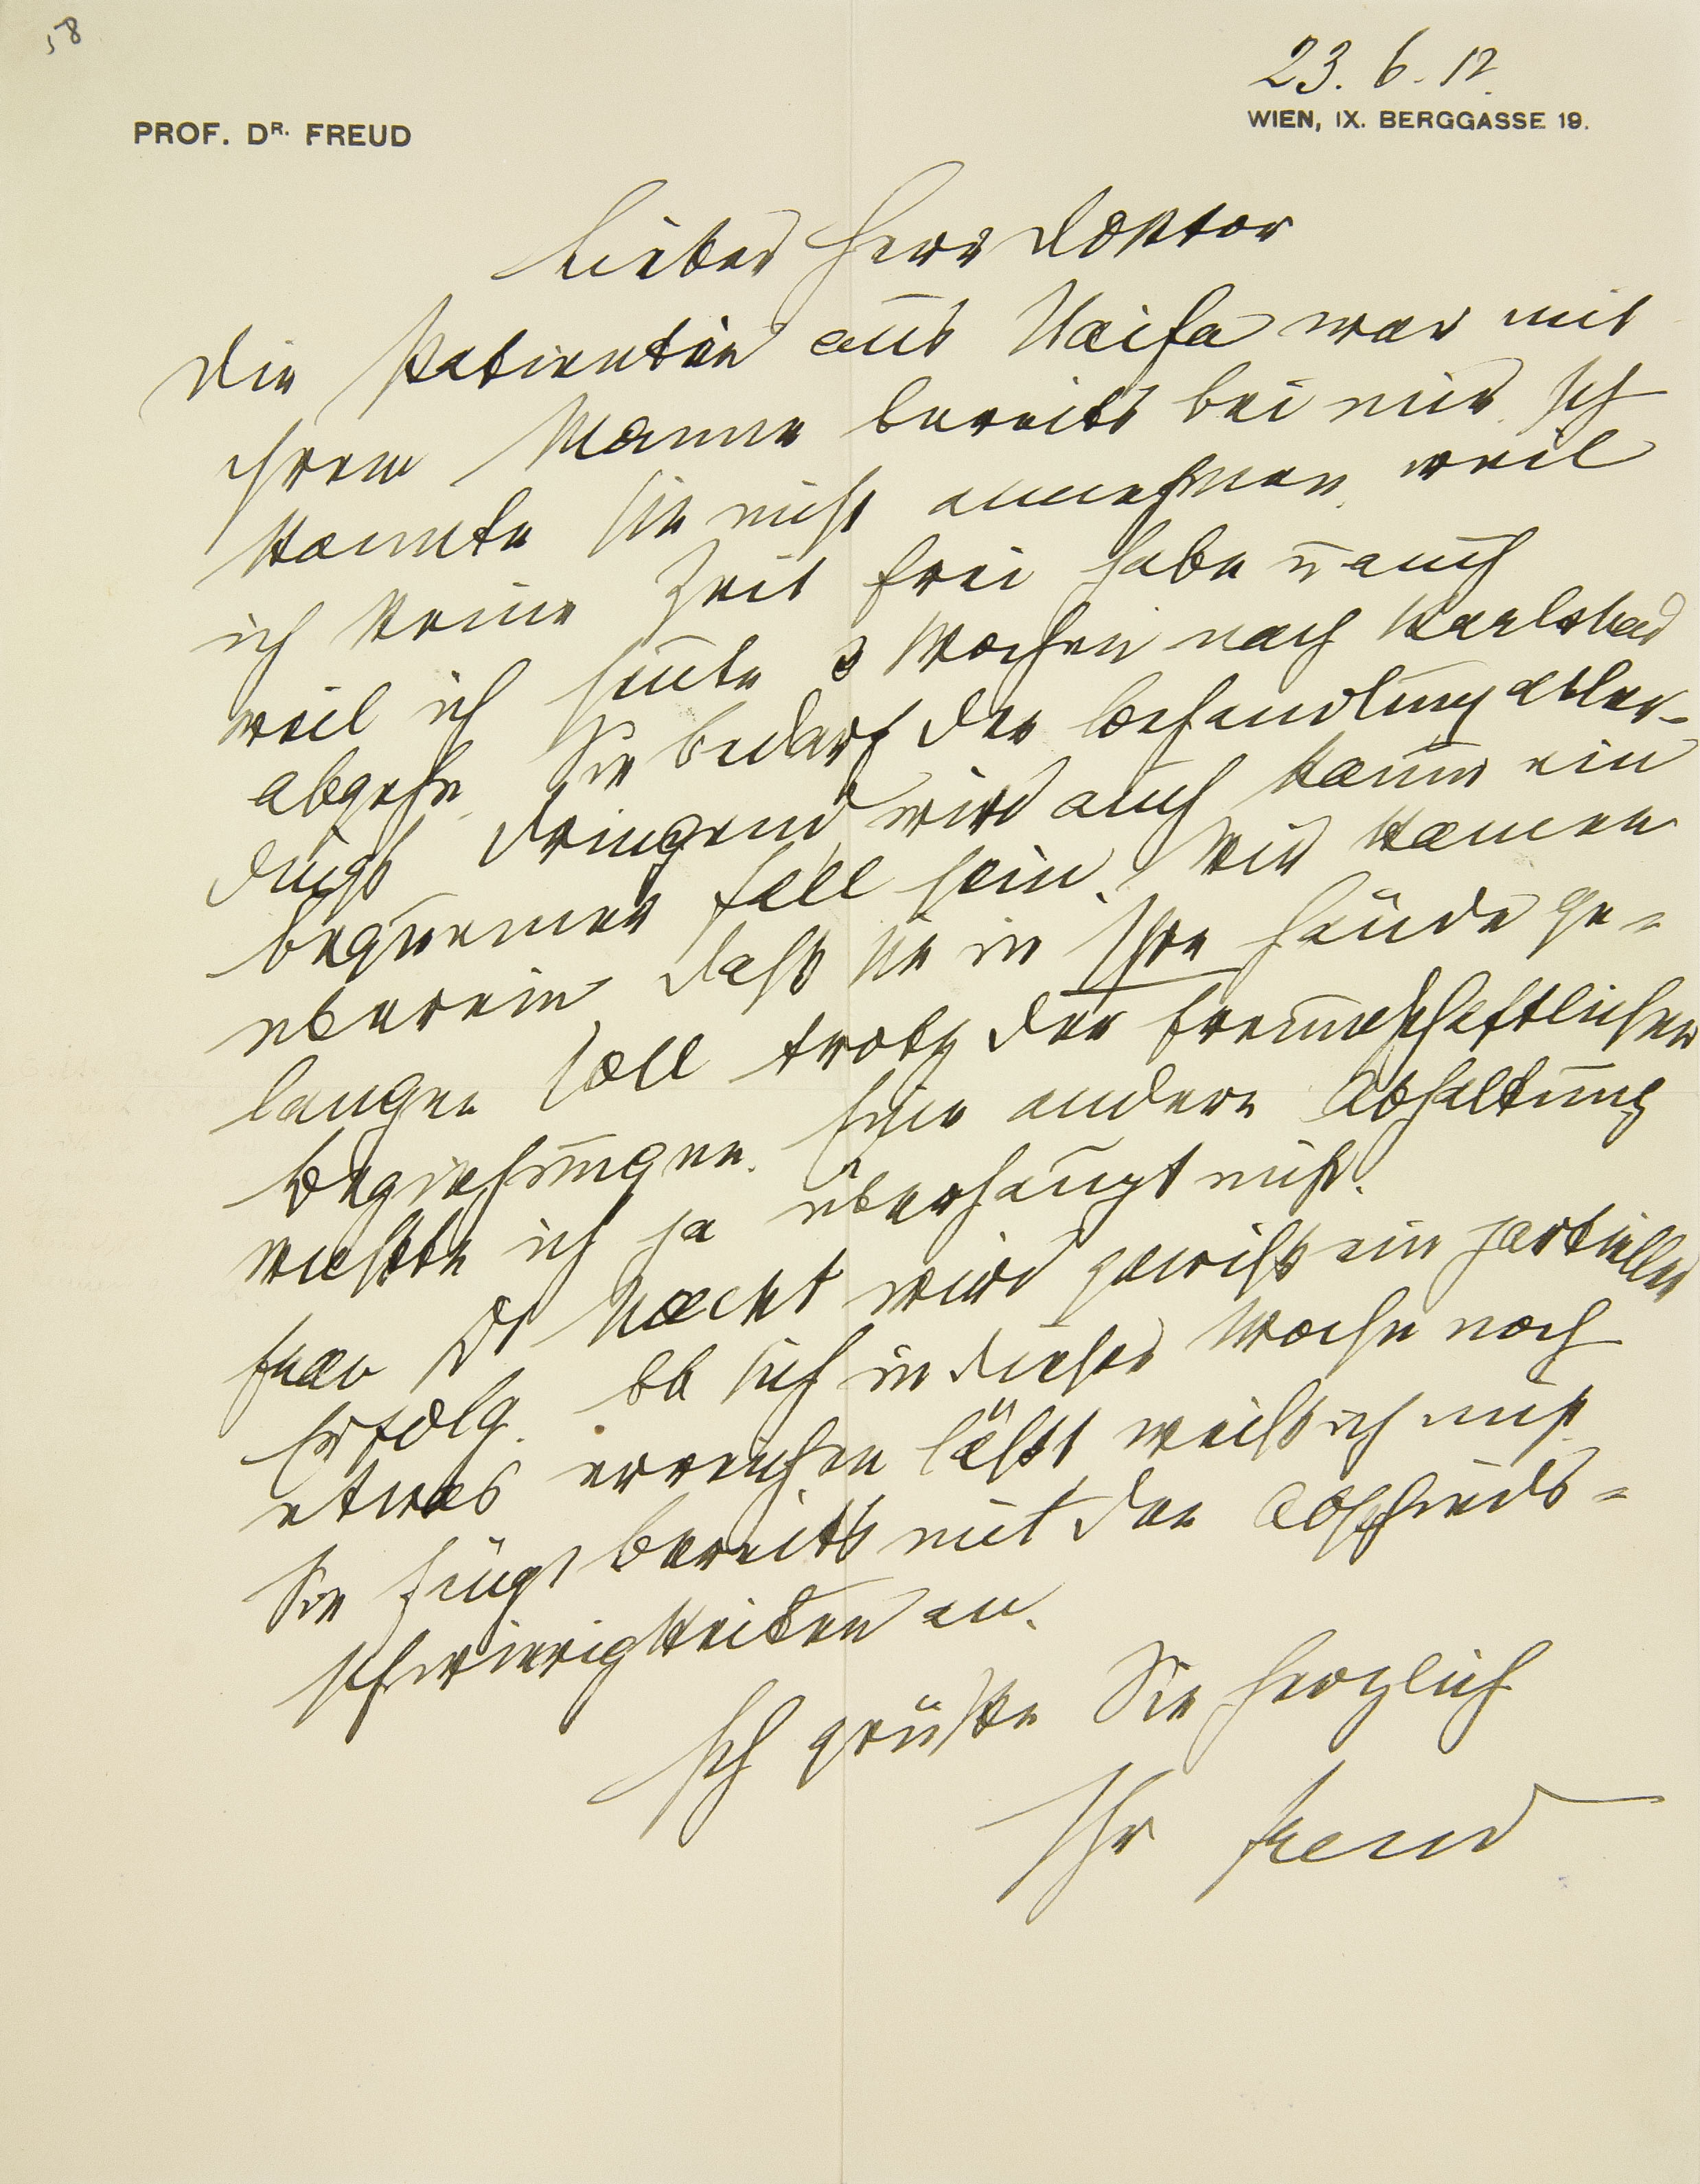 58
23. 6. 12.
PROF. DR. FREUD
WIEN, IX. BERGGASSE 19.
Lieber Herr Doktor
Die Patientin aus Haifa war mit
ihrem Manne bereits bei mir. Ich
konnte sie nicht annehmen, weil
ich keine Zeit frei habe u auch
weil ich heute 3 Wochen nach Karlsbad
abgehe. Sie bedarf der Behandlung aller-
dings dringend, wird auch kaum ein
bequemer Fall sein. Wir kamen
überein, daß sie in Ihre Hände ge-
langen soll trotz der freundschaftlichen
Beziehungen. Eine andere Abhaltung
wußte ich ja überhaupt nicht.
Frau Dr wird gewiß ein partieller
Erfolg. Ob sich in dieser Woche noch
etwas erreichen läßt weiß ich nicht.
Sie fängt bereits mit den Abschieds-
schwierigkeiten an.
Ich grüße Sie herzlich
Ihr Freud